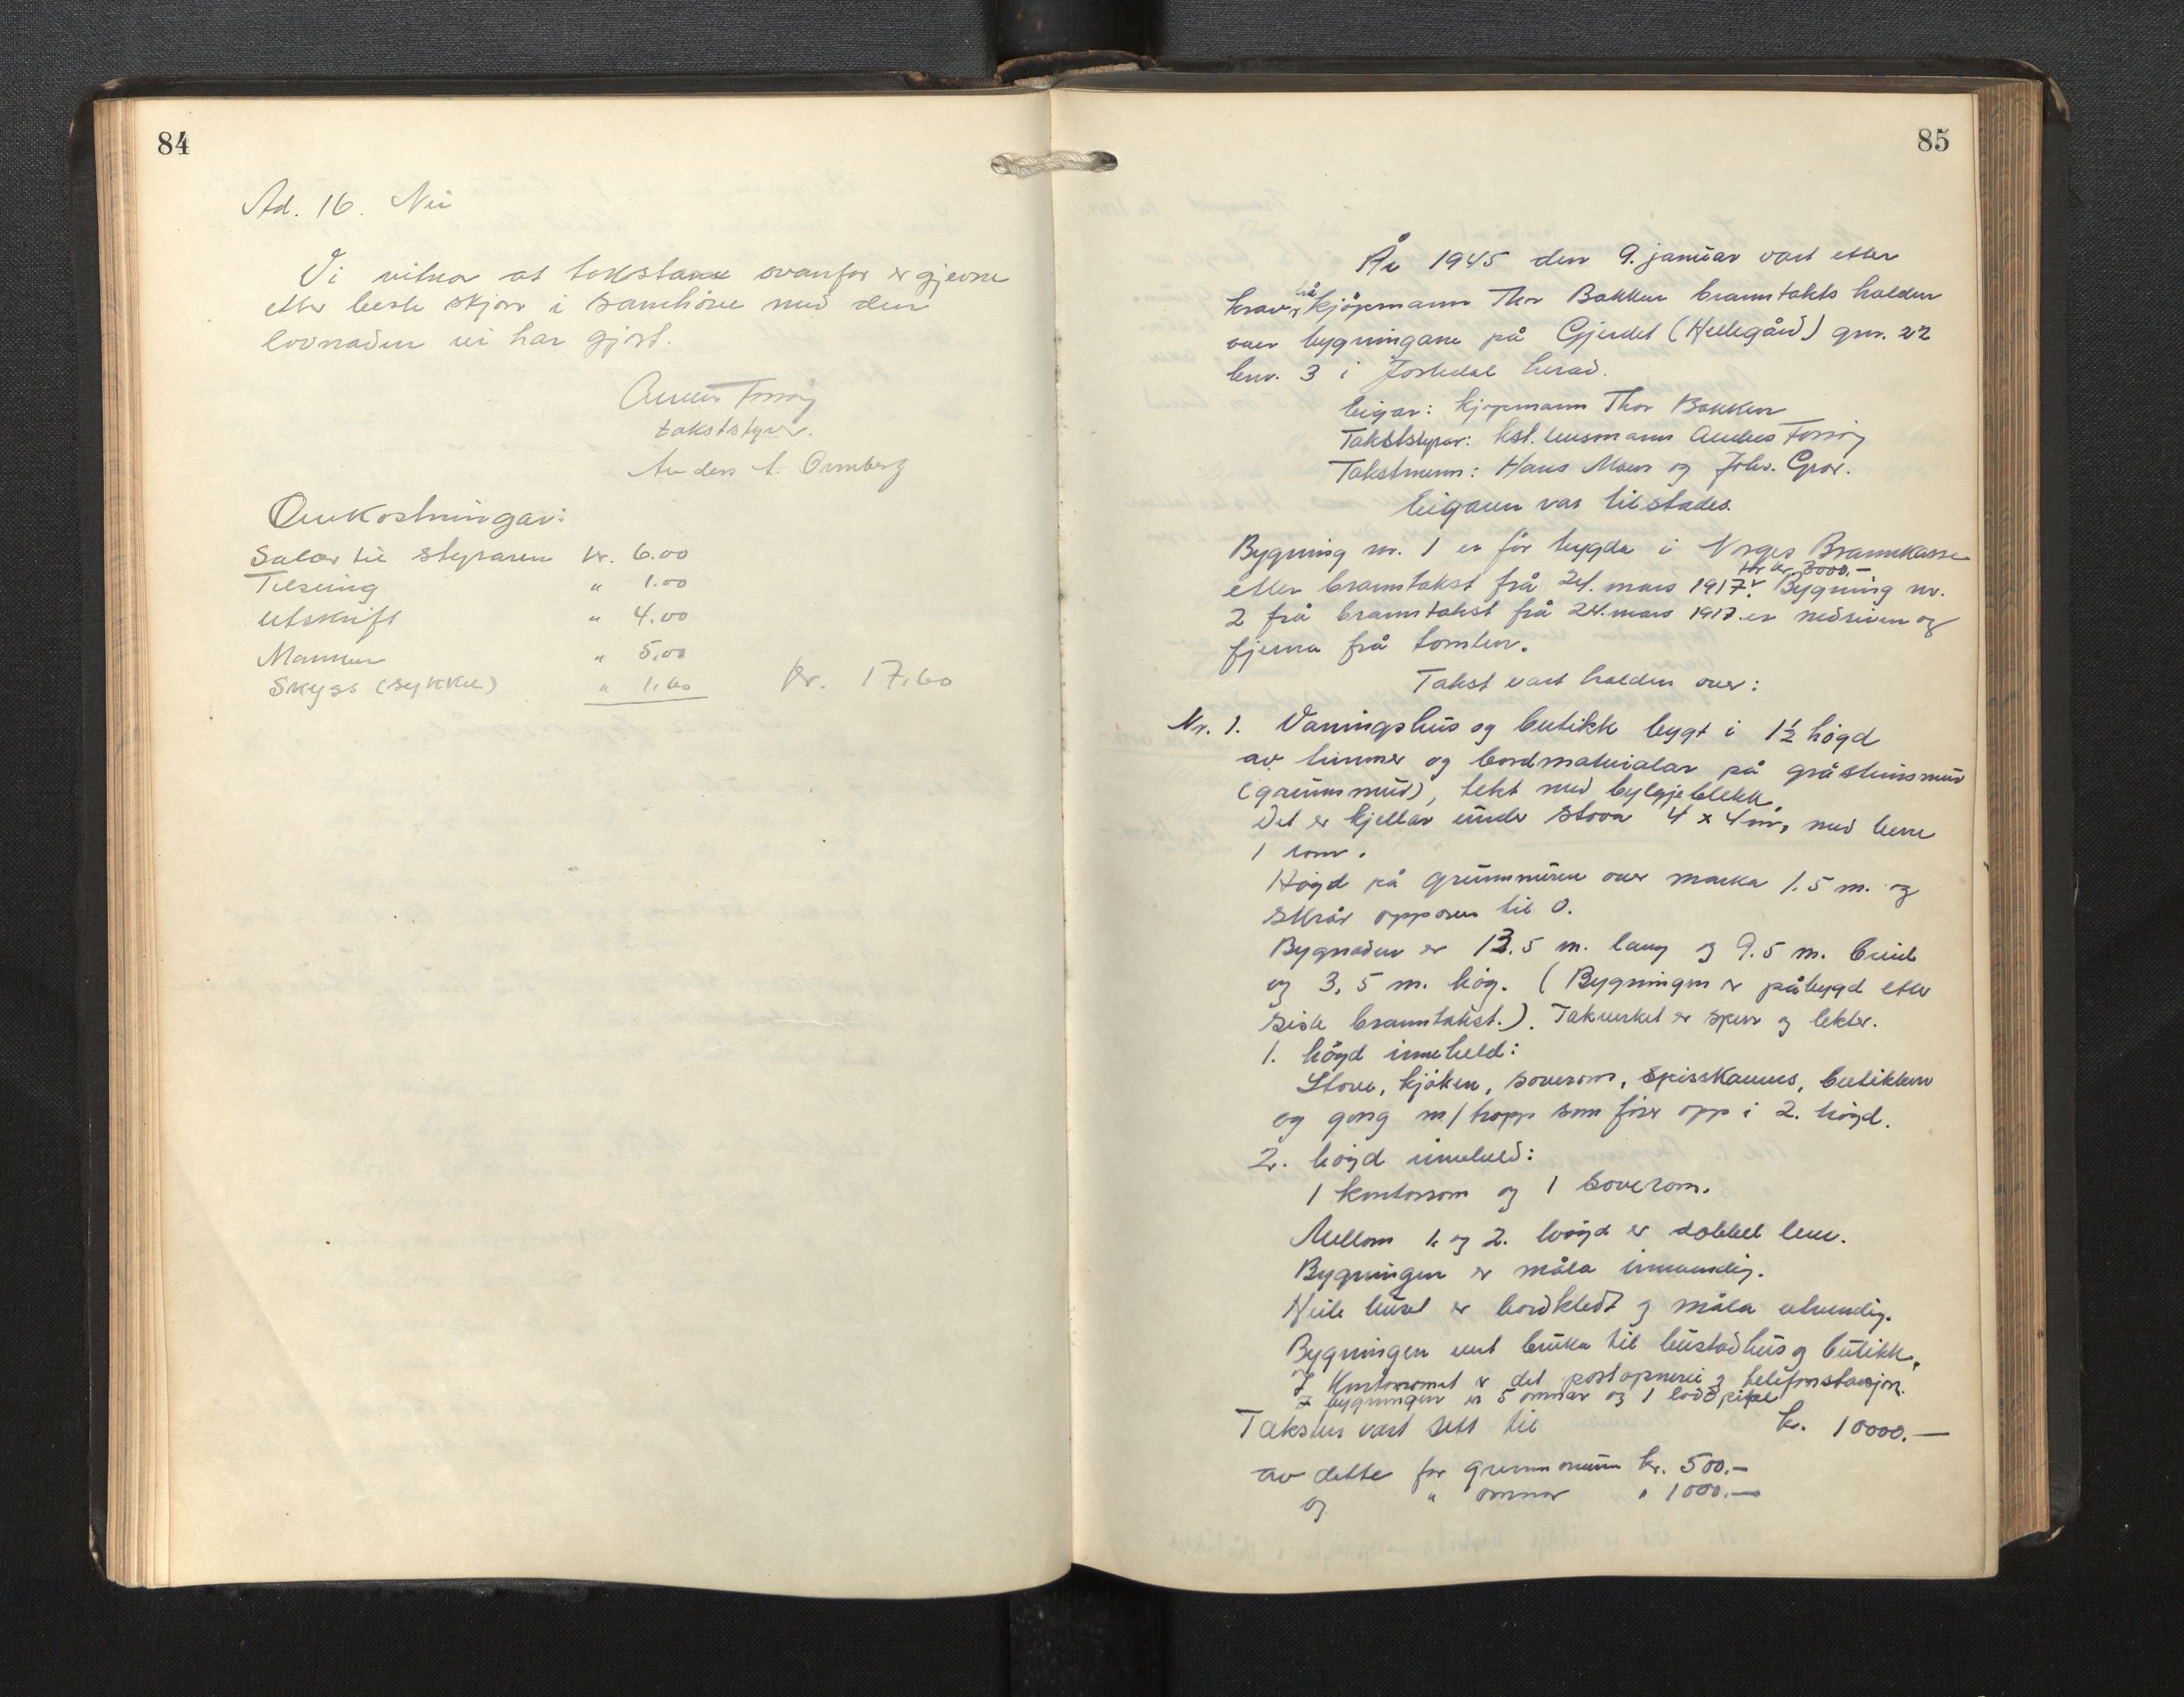 84
Ad. 16. Nei
Vi vitnar at takstane ovanfor er gjevne
etter beste skjøn i samhöve med den
lovnaden vi har gjort.
takststyrar.
Anders A. Ormberg
Omkostningar:
Salær til styraren kr. 6.00
Tilseiing " 1.00
Utskrift " 4.00
Mannen " 5,00
Skyss (sykkel) " 1,60 kr. 17,60
85
År 1945 den 9. januar vart etter
krav frå kjöpmann Thor Bakken branntakst halden
over bygningane på Gjerdet (Hellegård) gnr. 22
bnr. 3 i Jostedal herad.
Eigar: kjöpmann Thor Bakken
Takststyrar: kst. lensmann
Takstmenn: Hans Moen og Johs. Gror.
Eigaren var tilstades.
Bygning nr. 1 er för trygda i Norges Brannkasse
etter branntakst frå 24. mars 1917 for kr. 3000.- Bygning nr.
2 frå branntakst frå 24. mars 1917 er nedriven og
fjerna frå tomten.
Takst vart halden over:
Nr. 1. Vaningshus og butikk bygt i 1½ högd
av timmer og bordmaterialar på gråsteinsmur
(grunnmur), tekt med bylgjeblekk.
Det er kjellar under stova 4 x 4 m, med berre
1 rom.
Högd på grunnmuren over marka 1.5 m. og
skrår oppover til 0.
Bygnaden er 13.5 m. lang og 9.5 m. breid
og 3,5 m. hög. (Bygningen er påbygd etter
siste branntakst.). Takverket er sperr og lekter.
1. högd inneheld:
Stove, kjöken, soverom, spisskammers, butikken
og gong m/tropp som förer opp i 2. högd.
2. högd inneheld:
1 kontorrom og 1 soverom.
Mellom 1. og 2. högd er dobbel lem.
Bygningen er måla innvendig.
Heile huset er bordkledt og måla utvendig.
Bygningen vert bruka til bustadhus og butikk.
I kontorromet er det postopneri og telefonstasjon.
I bygningen er 5 omnar og 1 loddpipe
Taksten vart sett til kr. 10000.—
av dette for grunnmuren kr. 500.-
og " omnar " 1000.—